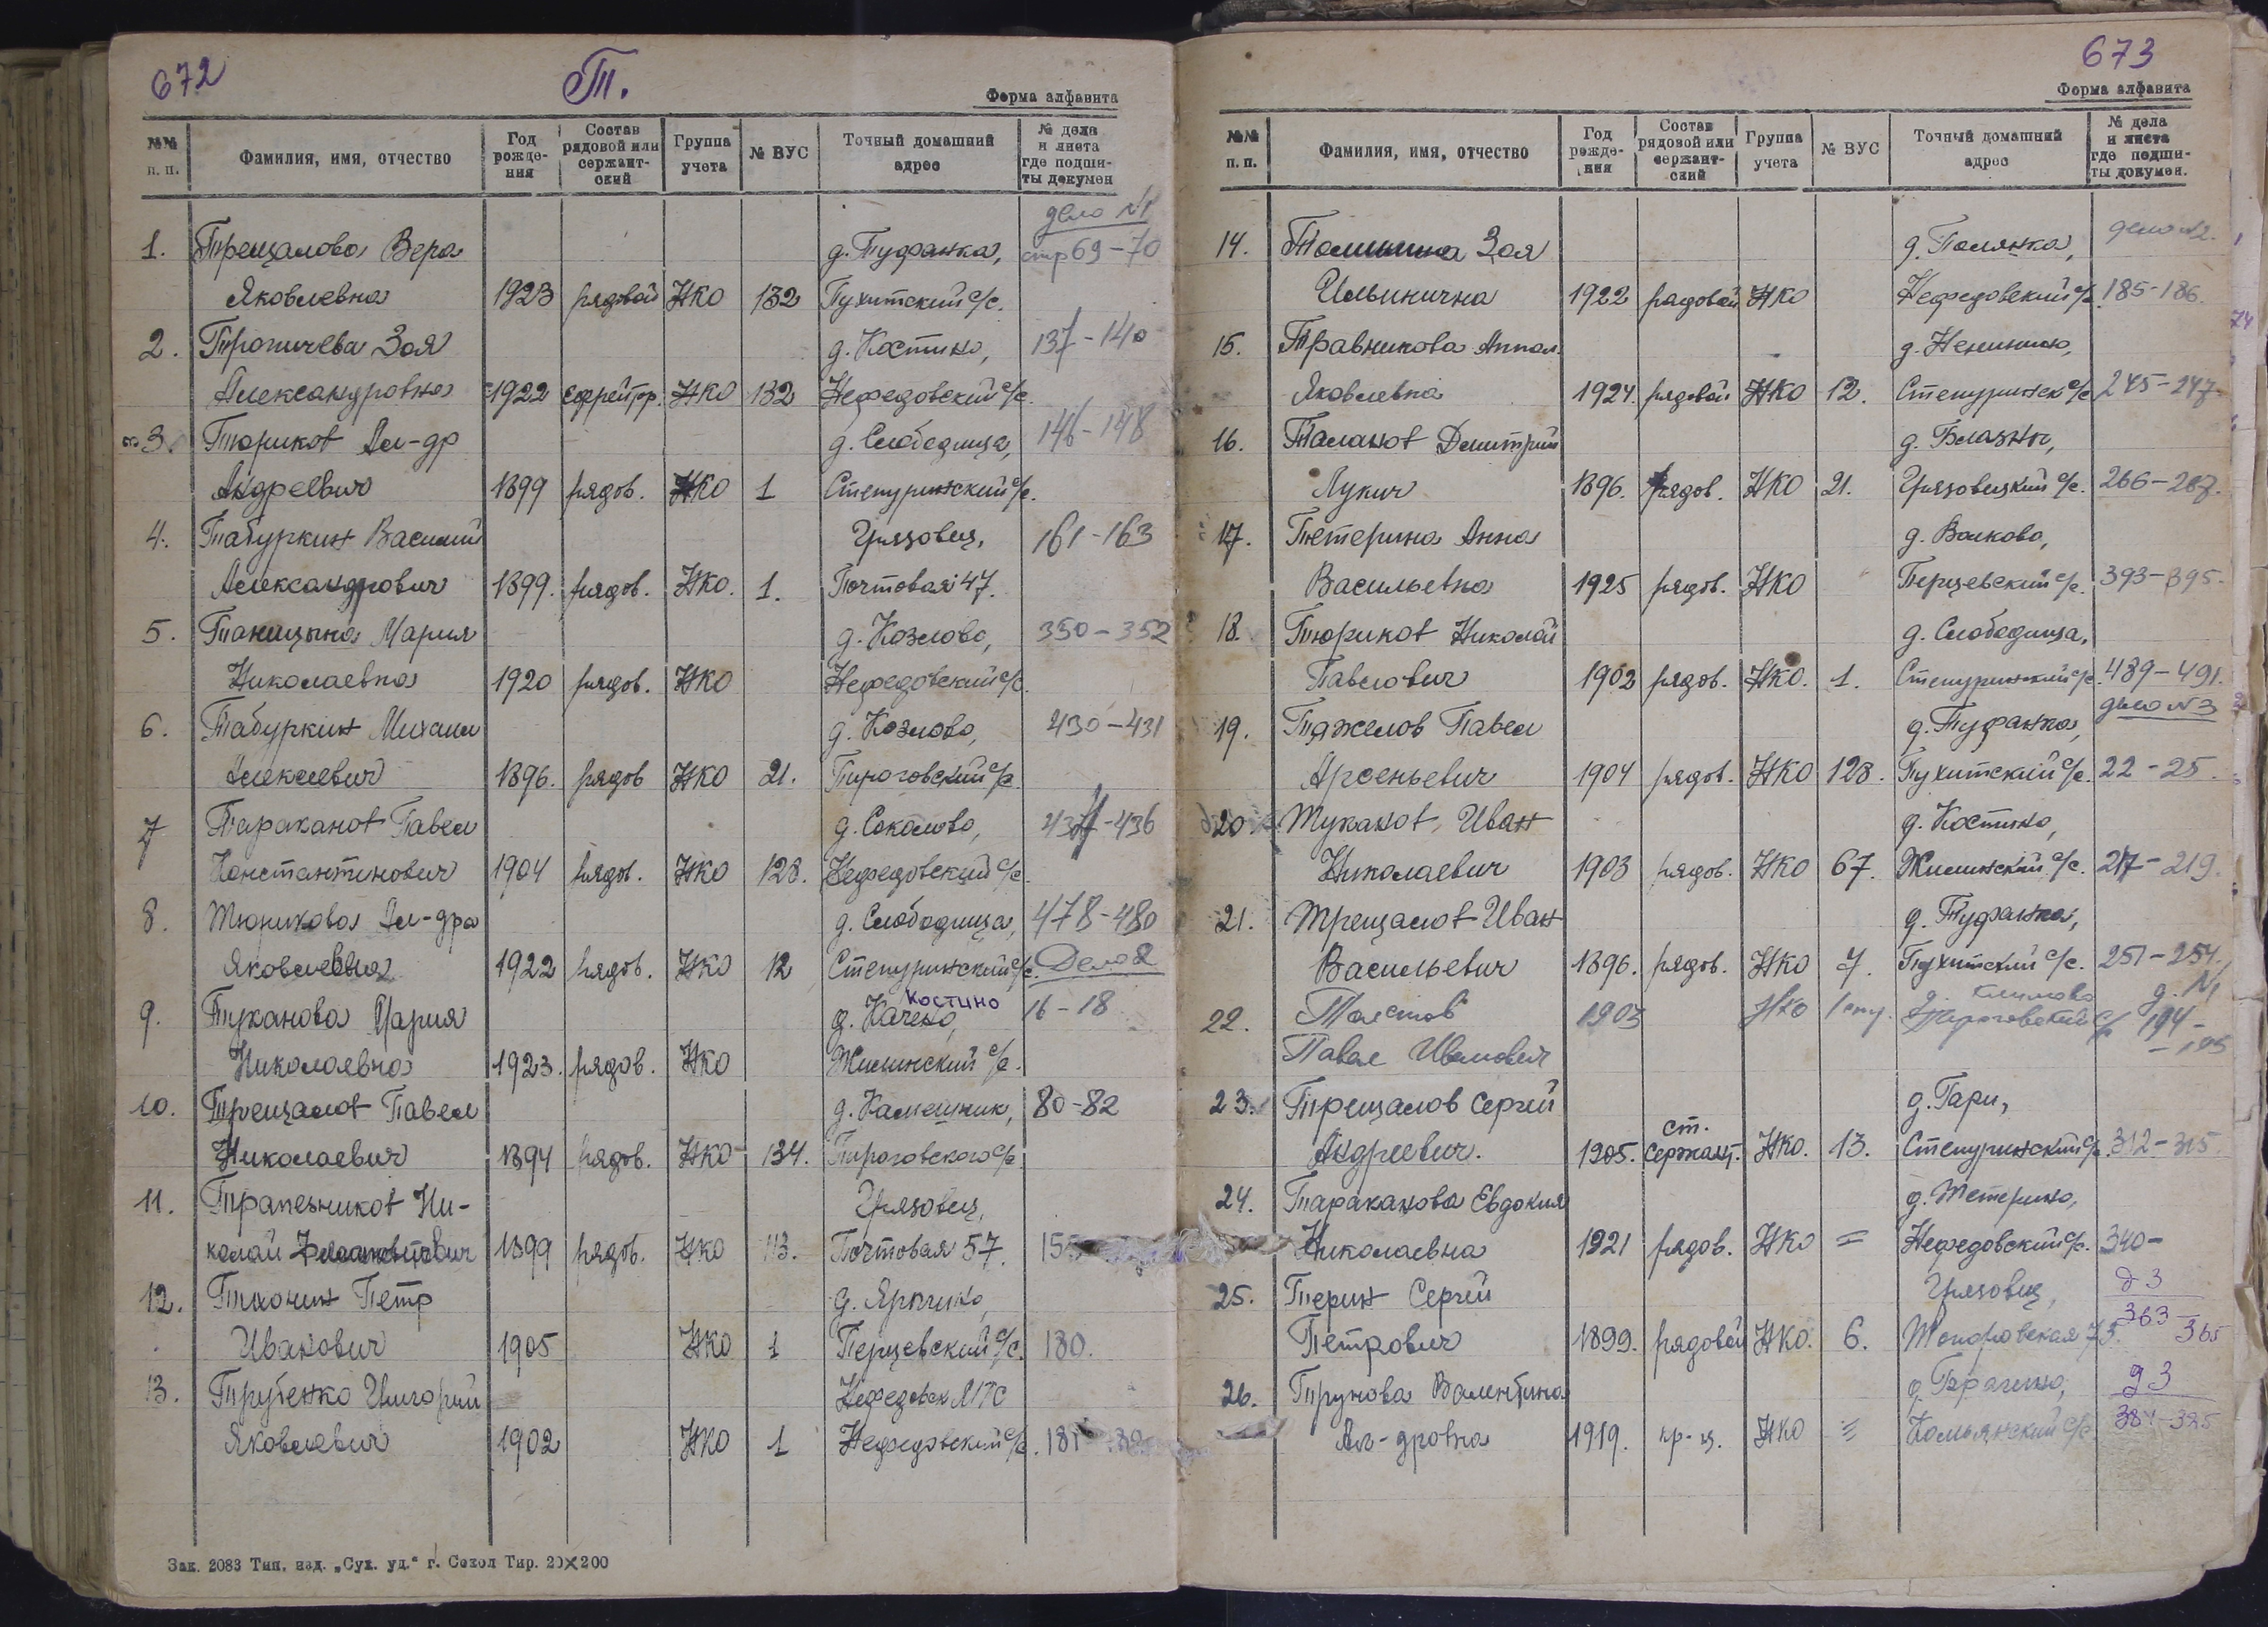 672
Т.
Форма алфавита
№№ п. п.
Фамилия, имя, отчество
Год рождения
Состав рядовой или сержантский
Группа учета
№ ВУС
Точный домашний адрес
№ дела и листа где подшиты докумен
дело №1
1. Трещалова Вера д. Туфанка, стр 69-70
Яковлевна 1923 рядовой НКО 132 Пухитский с/с.
2. Тропичева Зоя д. Костино, 137-140
Александровна 1922 ефрейтор. НКО 132 Нефедовский с/с.
3. Тюриков Ал-др д. Слободища, 146-148
Андреевич 1899 рядов. НКО 1 Степуринский с/с.
4. Табуркин Василий Грязовец, 161-163
Александрович 1899. рядов. НКО. 1. Почтовая 47.
5. Таницына Мария д. Козлово, 350-352
Николаевна 1920 рядов. НКО Нефедовский с/с.
6. Табуркин Михаил д. Козлово, 430-431
Алексеевич 1896. рядов НКО 21. Пироговский с/с.
7 Тараканов Павел д. Соколово, 434-436
Константинович 1904 рядов. НКО 128. Нефедовский с/с
8. Тюрикова Ал-дра д. Слободища, 478-480
Яковлевна 1922 рядов. НКО 12 Степуринский с/с. Дело 2
Костино
9. Туканова Мария д. 16-18
Николаевна 1923. рядов. НКО Жилинский с/с.
10. Трещалов Павел д. Камешник, 80-82
Николаевич 1894 рядов. НКО 134. Пироговского с/с
11. Трапезников Ни- Грязовец,
колай 1899 рядов. НКО 113. Почтовая 57. 155
12. Тихонин Петр д.
Иванович 1905 НКО 1 Перцевский с/с. 180.
13. Трубенко Григорий Нефедовск МТС
Яковлевич 1902 НКО 1 Нефедовский с/с. 181
Зак. 2083 Тип. изд. „Сух. уд." г. Сокол Тир. 20×200
673
Форма алфавита
№№ п. п.
Фамилия, имя, отчество
Год рождения
Состав рядовой или сержантский
Группа учета
№ ВУС
Точный домашний адрес
№ дела и листа где подшиты докумен.
14. Зоя д. Полянка, дело №2.
Ильинична 1922 рядовой НКО Нефедовский с/с 185-186.
15. Травникова Аппол. д.
Яковлевна 1924. рядовой НКО 12. Степуринск с/с 245-247
16. Таланов Дмитрий д. Блазны,
Лукич 1896. рядов. НКО 21. Грязовецкий с/с. 266-267.
17. Тетерина Анна д. Волково,
Васильевна 1925 рядов. НКО Перцевский с/с. 393-395.
18. Тюриков Николай д. Слободища,
Павлович 1902 рядов. НКО. 1. Степуринский с/с. 489-491.
дело №3
19. Тяжелов Павел д. Туфанка,
Арсеньевич 1904 рядов. НКО 128. Пухитский с/с. 22-25.
20. Туканов Иван д. Костино,
Николаевич 1903 рядов. НКО 67. Жилинский с/с. 217-219.
21. Трещалов Иван д. Туфанка,
Васильевич 1896. рядов. НКО 7. Пухитский с/с. 251-254.
22. Толстов 1903 НКО д. Климово Пироговский с/с д. №1 194-195
Павел Иванович
23. Трещалов Сергей д. Гари,
Андреевич. 1905. ст. сержант. НКО. 13. Степуринский с/с. 312-315.
24. Тараканова Евдокия д. Тетерино,
Николаевна 1921 рядов. НКО = Нефедовский с/с. 340-
25. Терин Сергей Грязовец, д 3
Петрович 1899. рядовой НКО. 6. 73. 363-365
26. Трунова Валентина д. д 3
Ал-дровна 1919. кр-ц. НКО = Комьянский с/с. 384-385